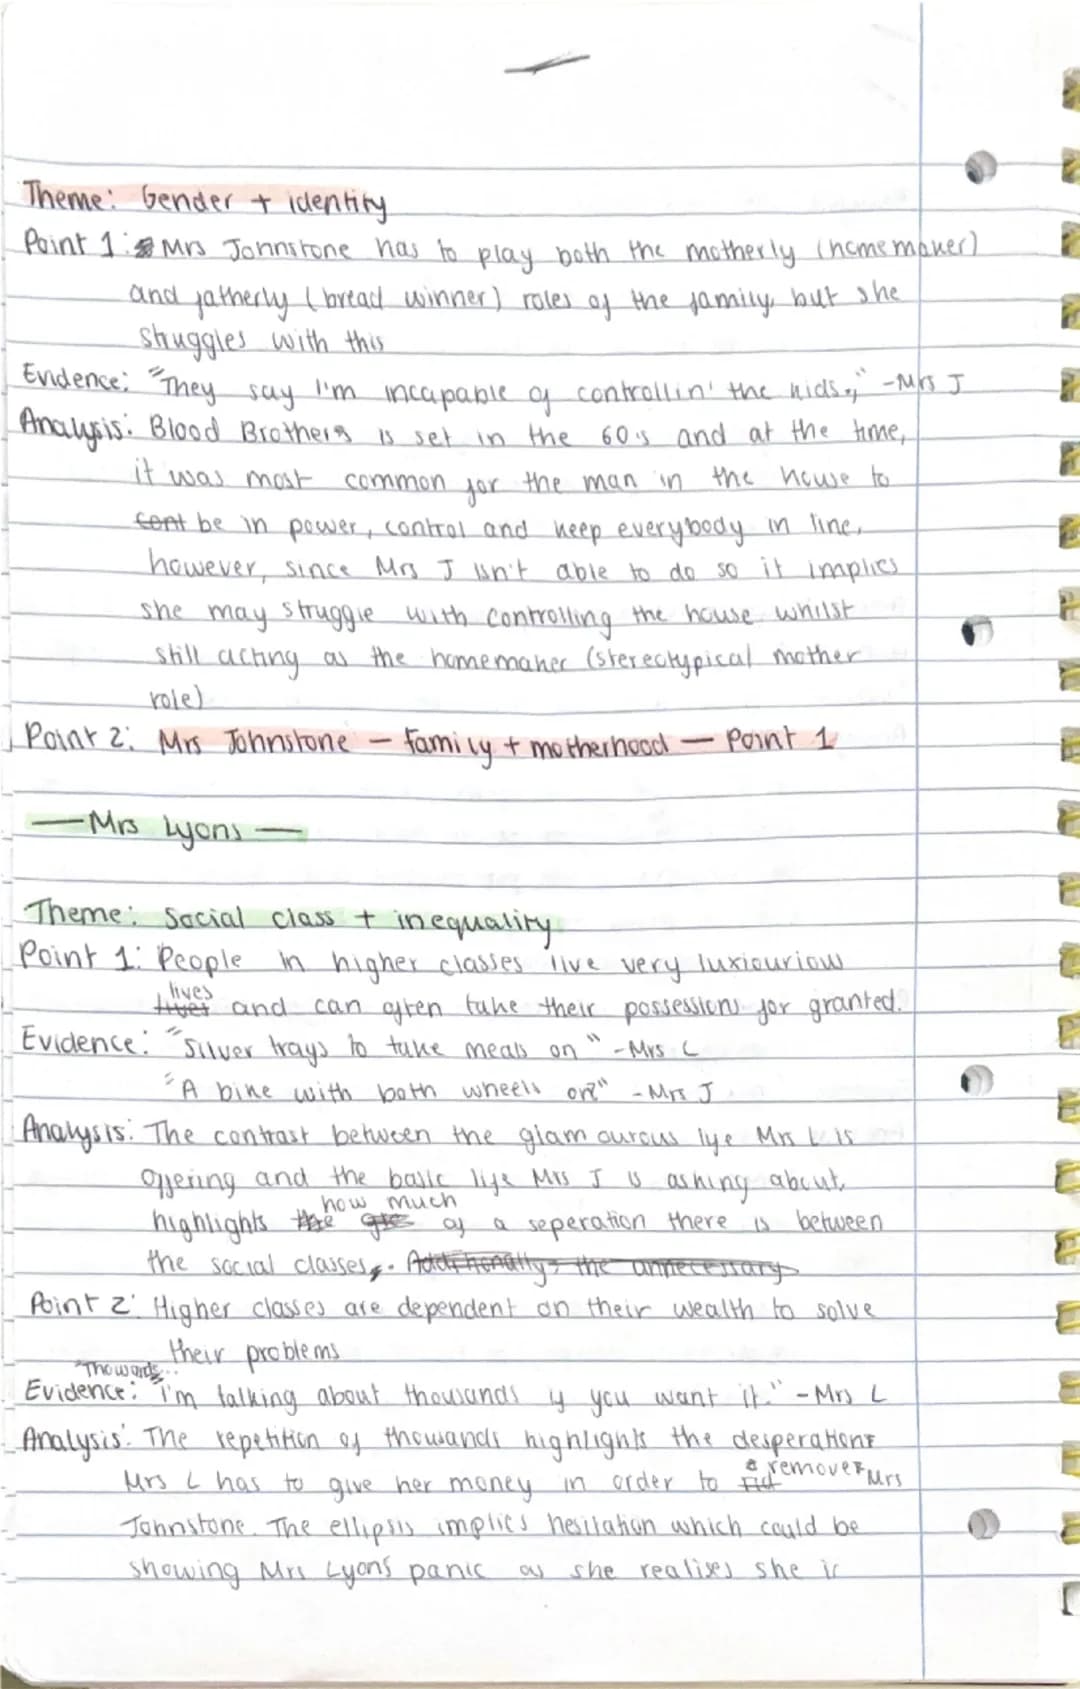 Theme: Gender + identity
Point 1: Mrs Johnstone has to play both the motherly (homemaker)
and fatherly (bread winner) roles of the family, but she
struggles with this
Evidence: "They say I'm incapable of controllin' the kids," -Mrs J
Analysis: Blood Brothers is set in the 60's and at the time,
it was most common for the man in the house to
cont be in power, control and keep everybody in line,
however, since Mrs J isn't able to do so it implies
she may struggle with controlling the house whilst
still acting as the homemaker (stereotypical mother
role)
Point 2: Mrs Johnstone - family + motherhood - Point 1
- Mrs Lyons -
Theme: Social class + inequality
Point 1: People in higher classes live very luxiourious
lives
lives and can often take their possessions for granted.
Evidence: "Silver trays to take meals on" -Mrs L
"A bike with both wheels on?" -Mrs J
Analysis: The contrast between the glamourous life Mrs L is
offering and the basic life Mrs J is asking about,
how much
highlights the of a seperation there is between
the social classes. Additionally, the unnecessary
Point 2: Higher classes are dependent on their wealth to solve
their problems
"Thousands...
Evidence: I'm talking about thousands if you want it." -Mrs L
Analysis: The repetition of thousands highlights the desperation
remove
Mrs L has to give her money in order to Mrs
Johnstone. The ellipsis implies hesitation which could be
showing Mrs Lyons' panic as she realises she is